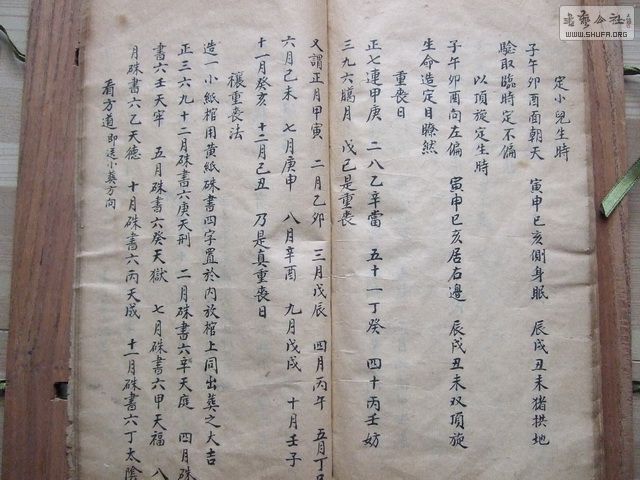 定小兒生時
子午卯酉面朝天 寅申巳亥側身眠 辰戌丑未豬拱地
驗取臨時定不偏
以頂旋定生時
子午卯酉向左偏 寅申巳亥居右邊 辰戌丑未双頂旋
生命造定目瞭然
重喪日
正七連甲庚 二八乙辛當 五十一丁癸 四十丙壬妨
三九六臈月 戊己是重喪
又謂正月甲寅 二月乙卯 三月戊辰 四月丙午 五月丁
六月己未 七月庚申 八月辛酉 九月戊戌 十月壬子
十一月癸亥 十二月己丑 乃是真重喪日
禳重喪法
造一小紙棺用黃紙硃書四字置於內放棺上同出葬之大吉
正三六九十二月硃書六庚天刑 二月硃書六辛天庭 四月硃
書六壬天牢 五月硃書六癸天獄 七月硃書六甲天福 八
月硃書六乙天德 十月硃書六丙天威 十一月硃書六丁太陰
看方道 即送小葬方向
WWW.SHUFA.ORG